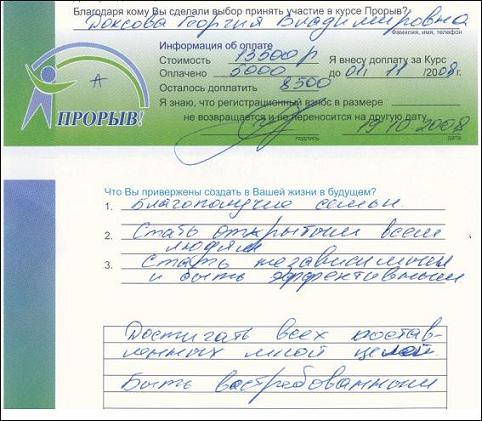 Благодаря кому Вы сделали выбор принять участие в курсе Прорыв?
Доксова Георгия Владимировна
Фамилия, имя, телефон
Информация об оплате
Стоимость 13500 р Я внесу доплату за Курс
Оплачено 5000 до 01/11/2008г.
Осталось доплатить 8500
Я знаю, что регистрационный взнос в размере
не возвращается и не переносится на другую дату
А
ПРОРЫВ!
19 10 2008
подпись дата
Что Вы привержены создать в Вашей жизни в будущем?
1. Благополучие семьи.
2. Стать открытым всем
людям
3. Стать независимым
и быть эффективным
Достигать всех постав-
ленных мной целей
Быть востребованным